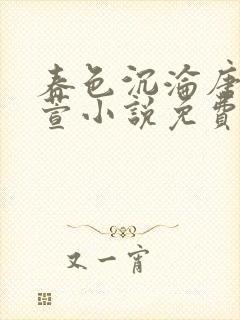 春色沉淪唐
萱小說免費
又一宵